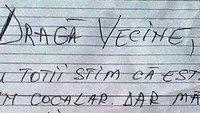 DRAGĂ VECINE,
TOȚII STIM CĂ EST
COCALAR. DAR MĂ